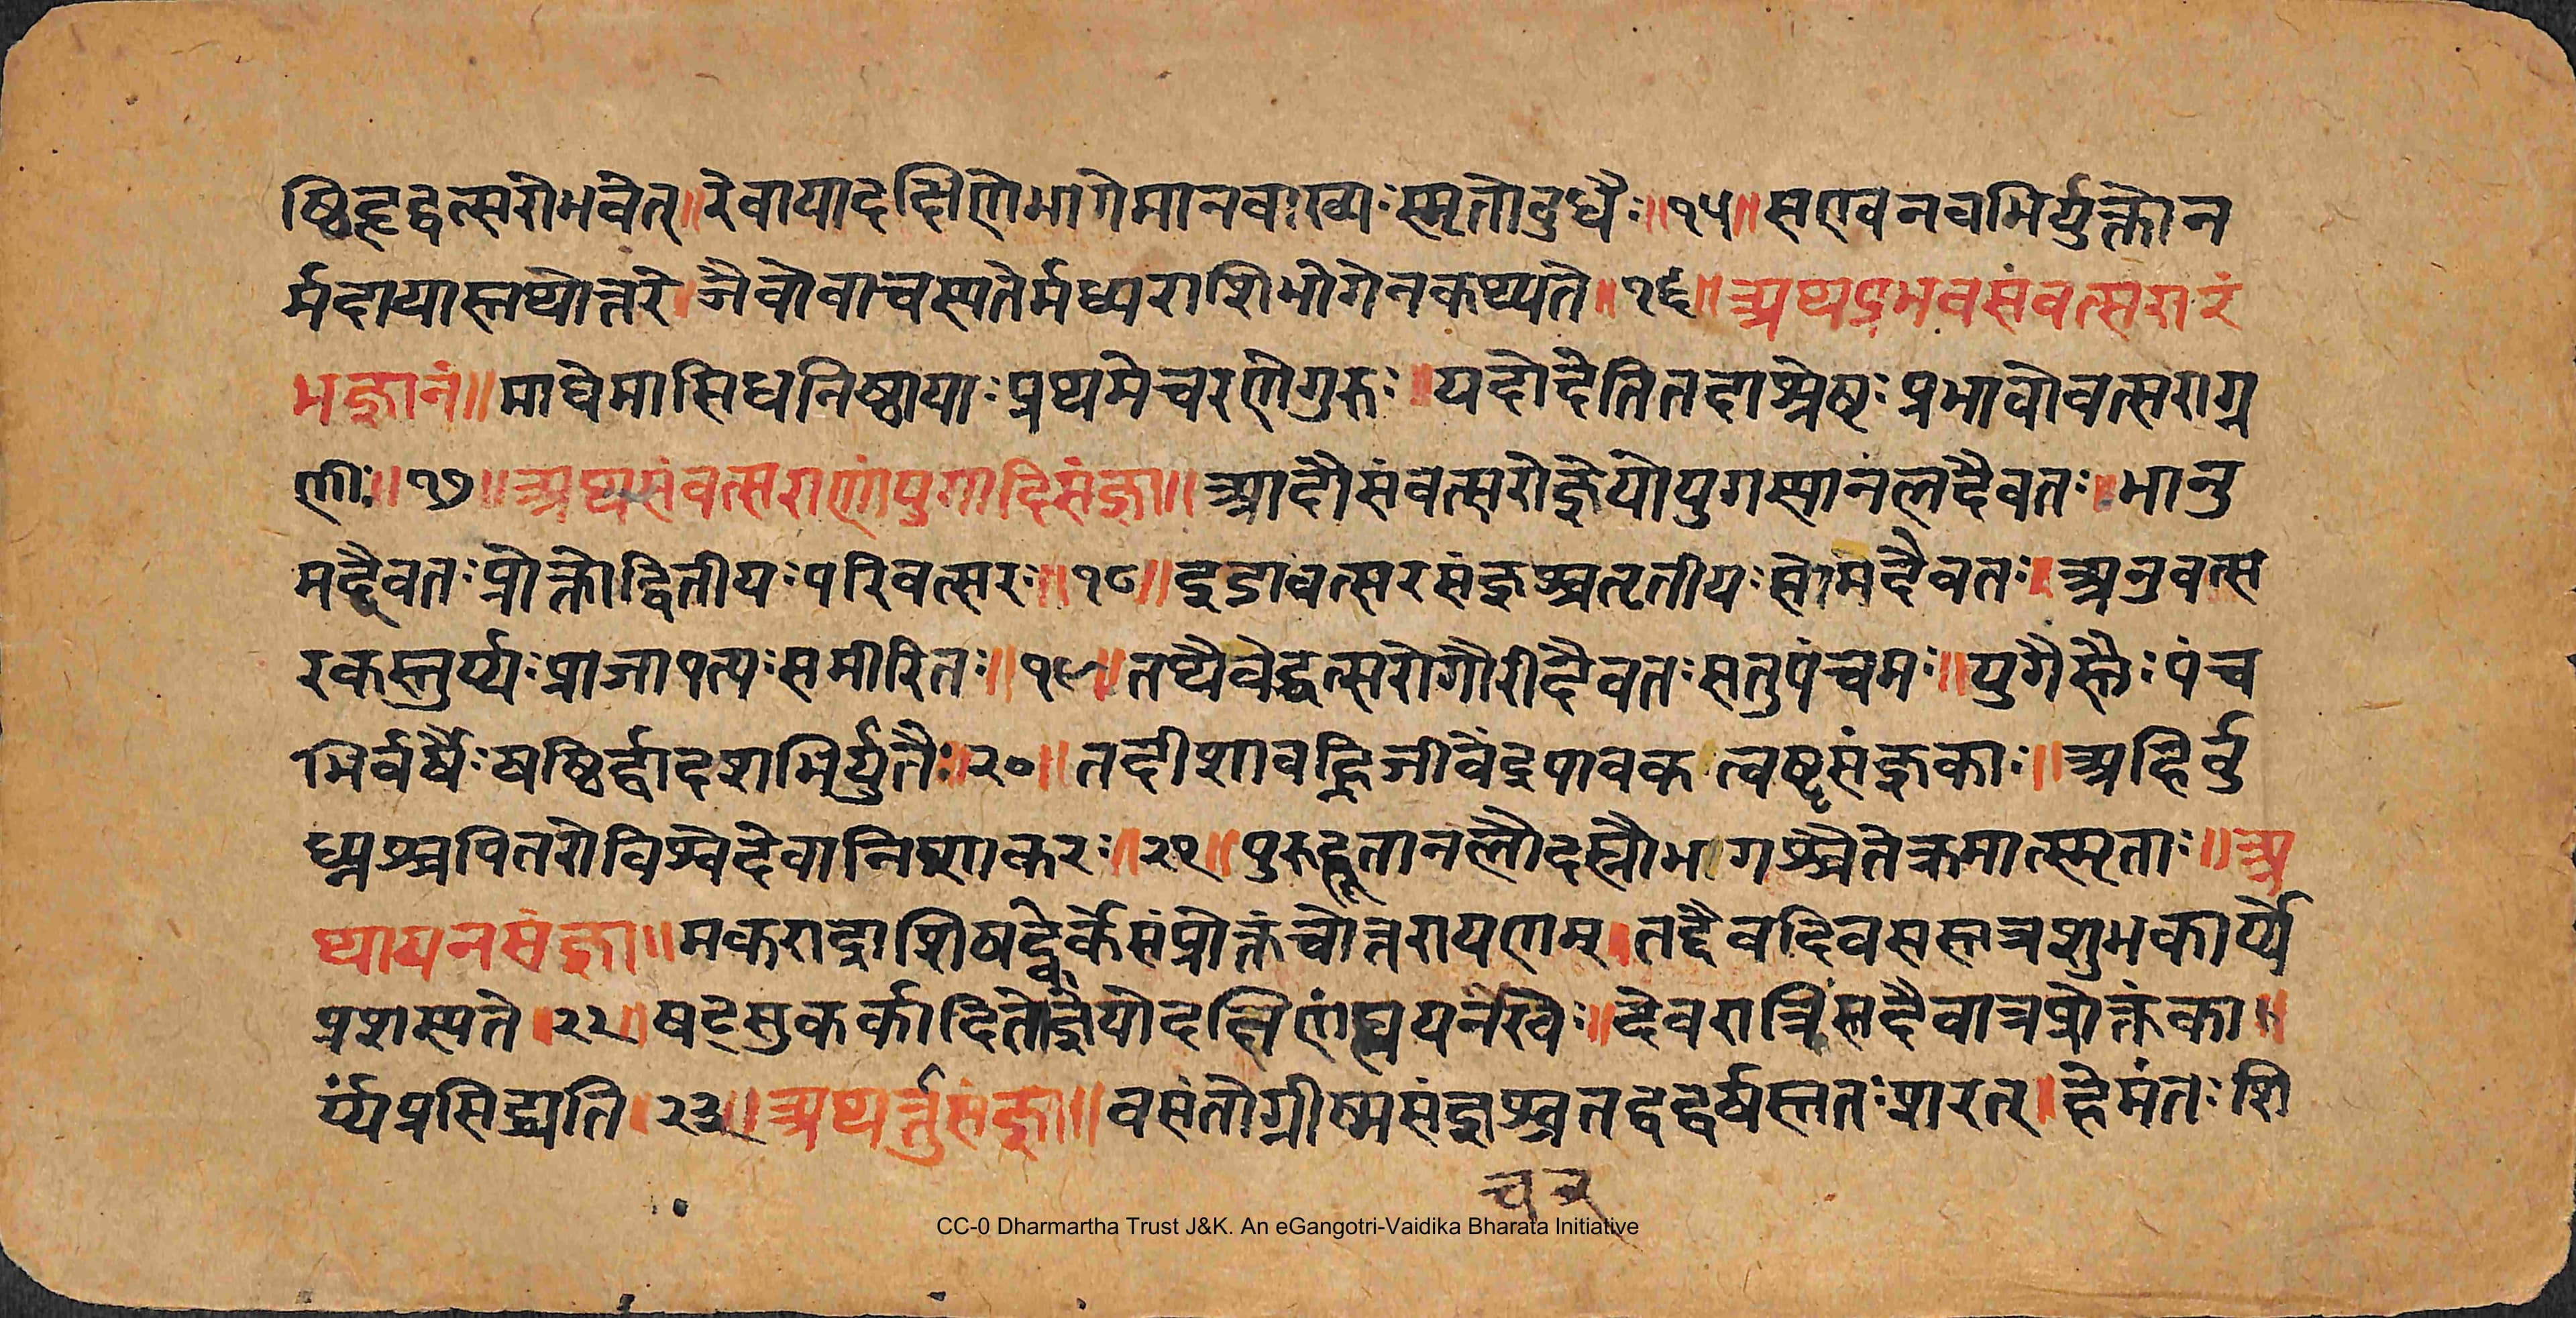 ष्ठिहृद्वत्सरोभवेत्॥रेवायादक्षिणेभागेमानवाख्यःस्मृतोवुधैः॥१५॥सएवनवभिर्युक्तोन
र्मदायास्तथोत्तरे।जैवोवाचस्पतेर्मध्यराशिभोगेनकथ्यते॥१६॥अथप्रभवसंवत्सरारं
भज्ञानं॥माघेमासिधनिष्ठायाःप्रथमेचरणेगुरुः॥यदोदेतितदाश्रेष्ठःप्रभावोवत्सराग्र
णीः॥१७॥अथसंवत्सराणांयुगादिसंज्ञा॥आदौसंवत्सरोज्ञेयोयुगस्यानलदैवतः॥भानु
मद्दैवतःप्रोक्तोद्वितीयःपरिवत्सरः॥१८॥इडावत्सरसंज्ञश्चतृतीयःसोमदैवतः॥अनुवत्स
रकस्तुर्य्यःप्राजापत्यःसमीरितः॥१९॥तथैवेद्वत्सरोगौरीदैवतःसतुपंचमः॥युगैस्तैःपंच
भिर्वर्षैःषष्ठिर्द्वादशभिर्युतैः॥२०॥तदीशावह्निजीवेंद्रपावकत्वष्टृसंज्ञकाः॥अहिर्वु
ध्न्यश्चपितरोविश्वेदेवानिशाकरः॥२१॥पुरुहूतानलौदस्त्रौभागश्चैतेक्रमात्स्मृताः॥अ
थायनसंज्ञा॥मकराद्राशिषट्केर्केसंप्रोक्तंचोत्तरायणम्।तद्दैवदिवसस्तत्रशुभकार्य्यं
प्रशस्यते॥२२॥षट्सुकर्कादितोज्ञेयोदक्षिणंह्ययनंरवेः॥दैवरात्रिंस्तदैवात्रप्रोक्तंका॥
र्य्यंप्रसिद्ध्यति॥२३॥अथर्त्तुसंज्ञा॥वसंतोग्रीष्मसंज्ञश्चतद्वद्वर्षस्ततःशरत्॥हेमंतःशि
च र
CC-0 Dharmartha Trust J&K. An eGangotri-Vaidika Bharata Initiative